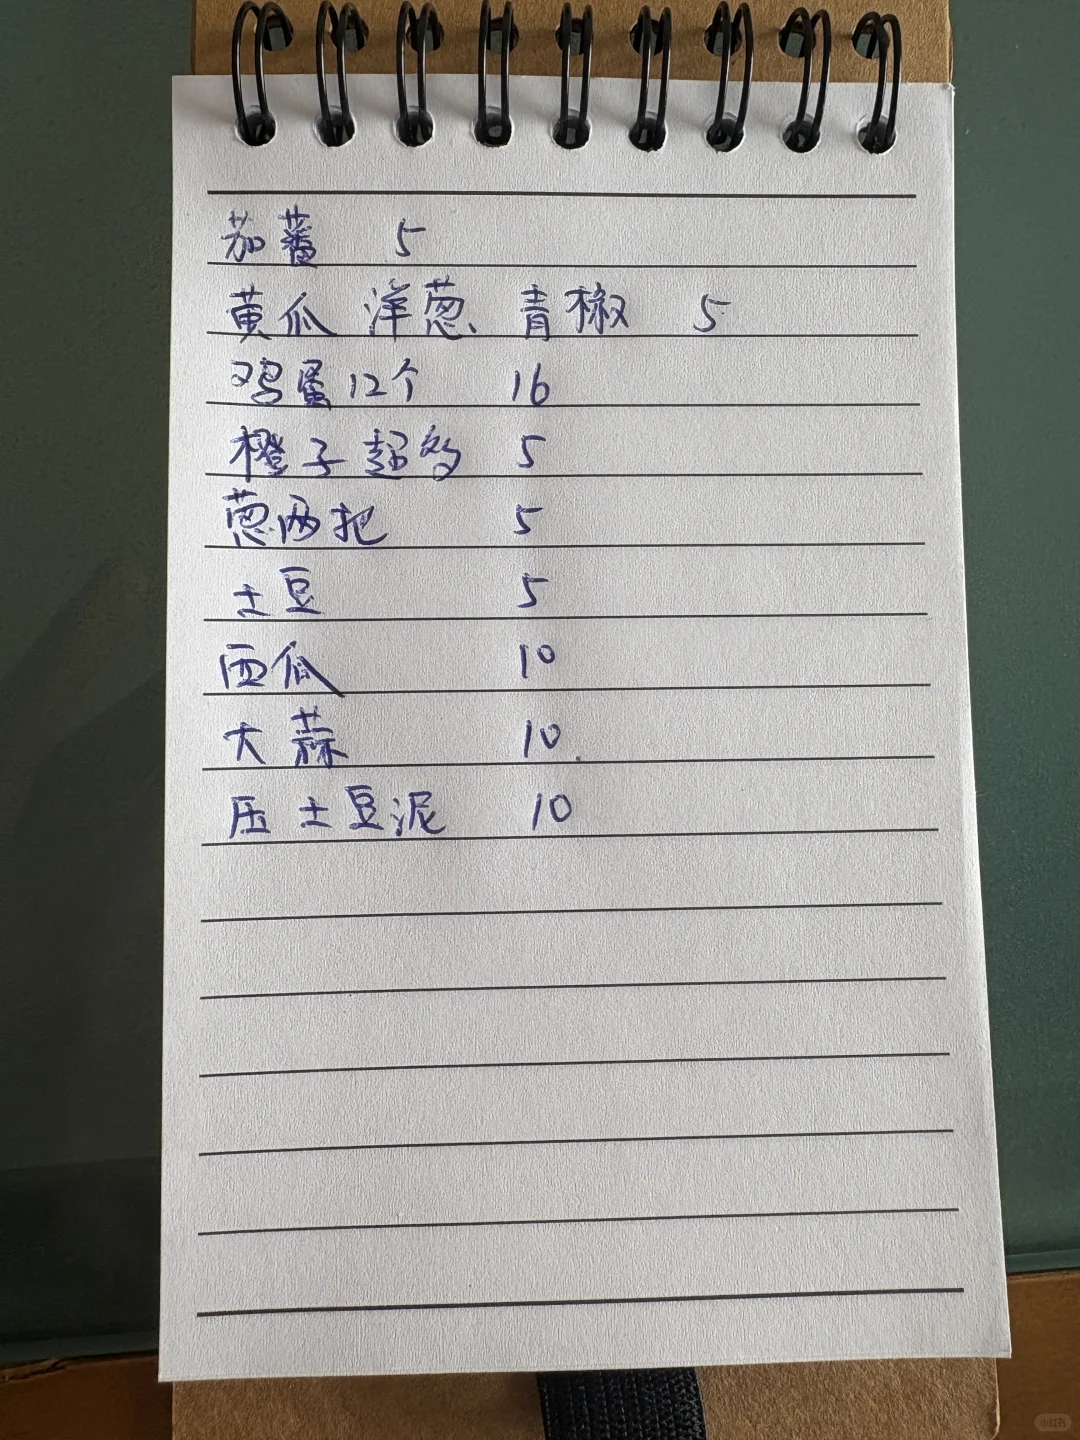 茄蕃 5
黄瓜 洋葱 青椒 5
鸡蛋12个 16
橙子超多 5
葱两把 5
土豆 5
西瓜 10
大蒜 10.
压土豆泥 10
小红书